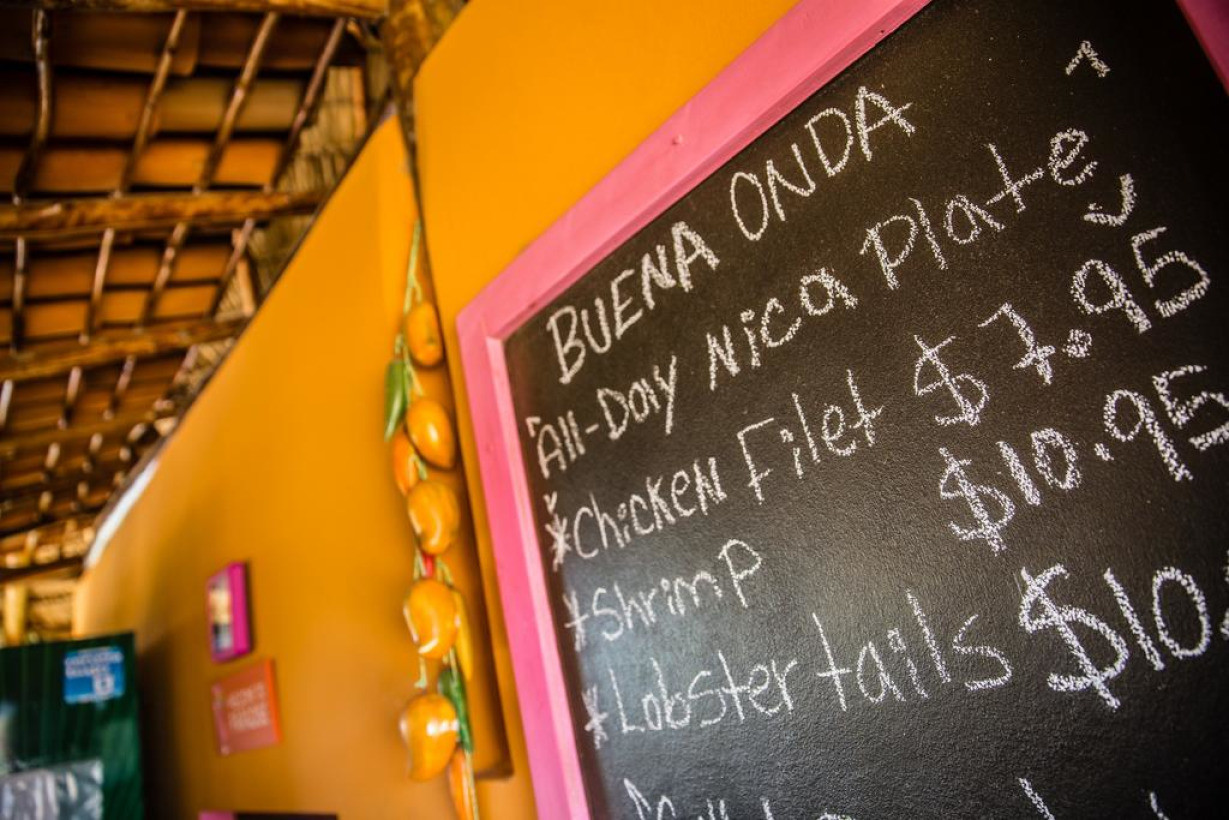 BUENA ONDA
All-Day Nica Plate
*Chicken Filet $7.95
*Shrimp $10.95
*Lobster tails $10